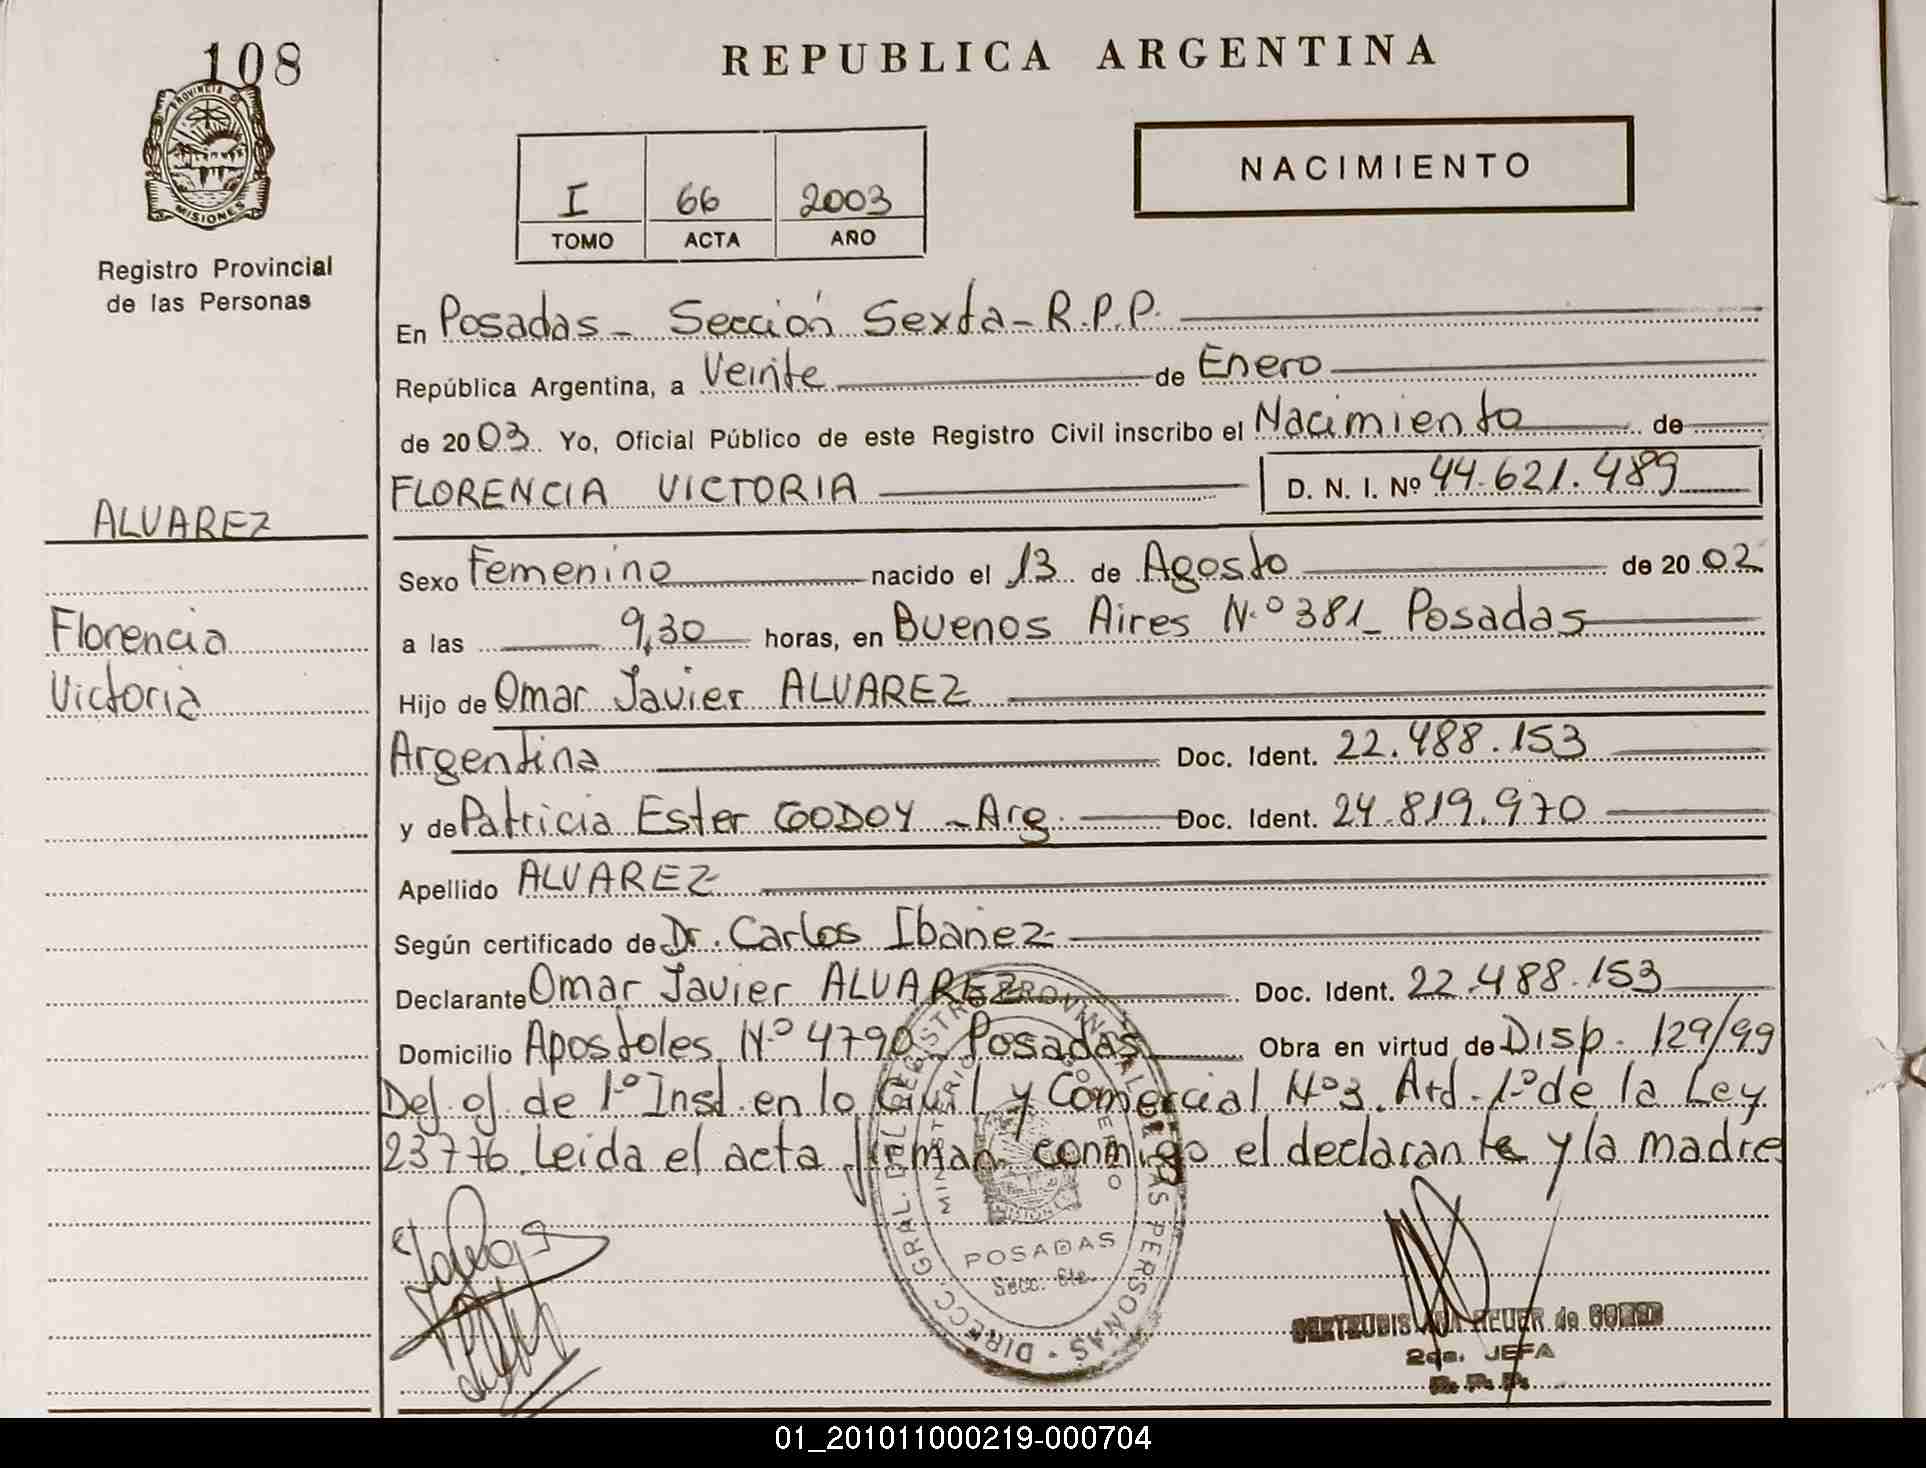 108
PROVINCIA DE
MISIONES
Registro Provincial
de las Personas
REPUBLICA ARGENTINA
I 66 2003
TOMO ACTA AÑO
NACIMIENTO
En Posadas - Sección Sexta - R.P.P.
República Argentina, a Veinte de Enero
de 2003. Yo, Oficial Público de este Registro Civil inscribo el Nacimiento de
FLORENCIA VICTORIA D. N. I. Nº 44.621.489
ALVAREZ
Sexo Femenino nacido el 13 de Agosto de 2002
Florencia
a las 9,30 horas, en Buenos Aires N.º 381_ Posadas
Victoria
Hijo de Omar Javier ALVAREZ
Argentina Doc. Ident. 22.488.153
y de Patricia Ester GODOY - Arg. Doc. Ident. 24.819.970
Apellido ALVAREZ
Según certificado de Dr. Carlos Ibañez
Declarante Omar Javier ALVAREZ Doc. Ident. 22.488.153
Domicilio Apostoles N.º 4790 - Posadas Obra en virtud de Disp. 129/99
Def. of. de 1º Inst. en lo Civil y Comercial Nº3. Art. 1º de la Ley
23776. Leida el acta firman conmigo el declarante y la madre
DIRECC. GRAL. DEL REGISTRO PROVINCIAL DE LAS PERSONAS
MINISTERIO GOBIERNO
POSADAS
Secc. 6ta.
de GOMEZ
2da. JEFA
R. P. P.
01_201011000219-000704